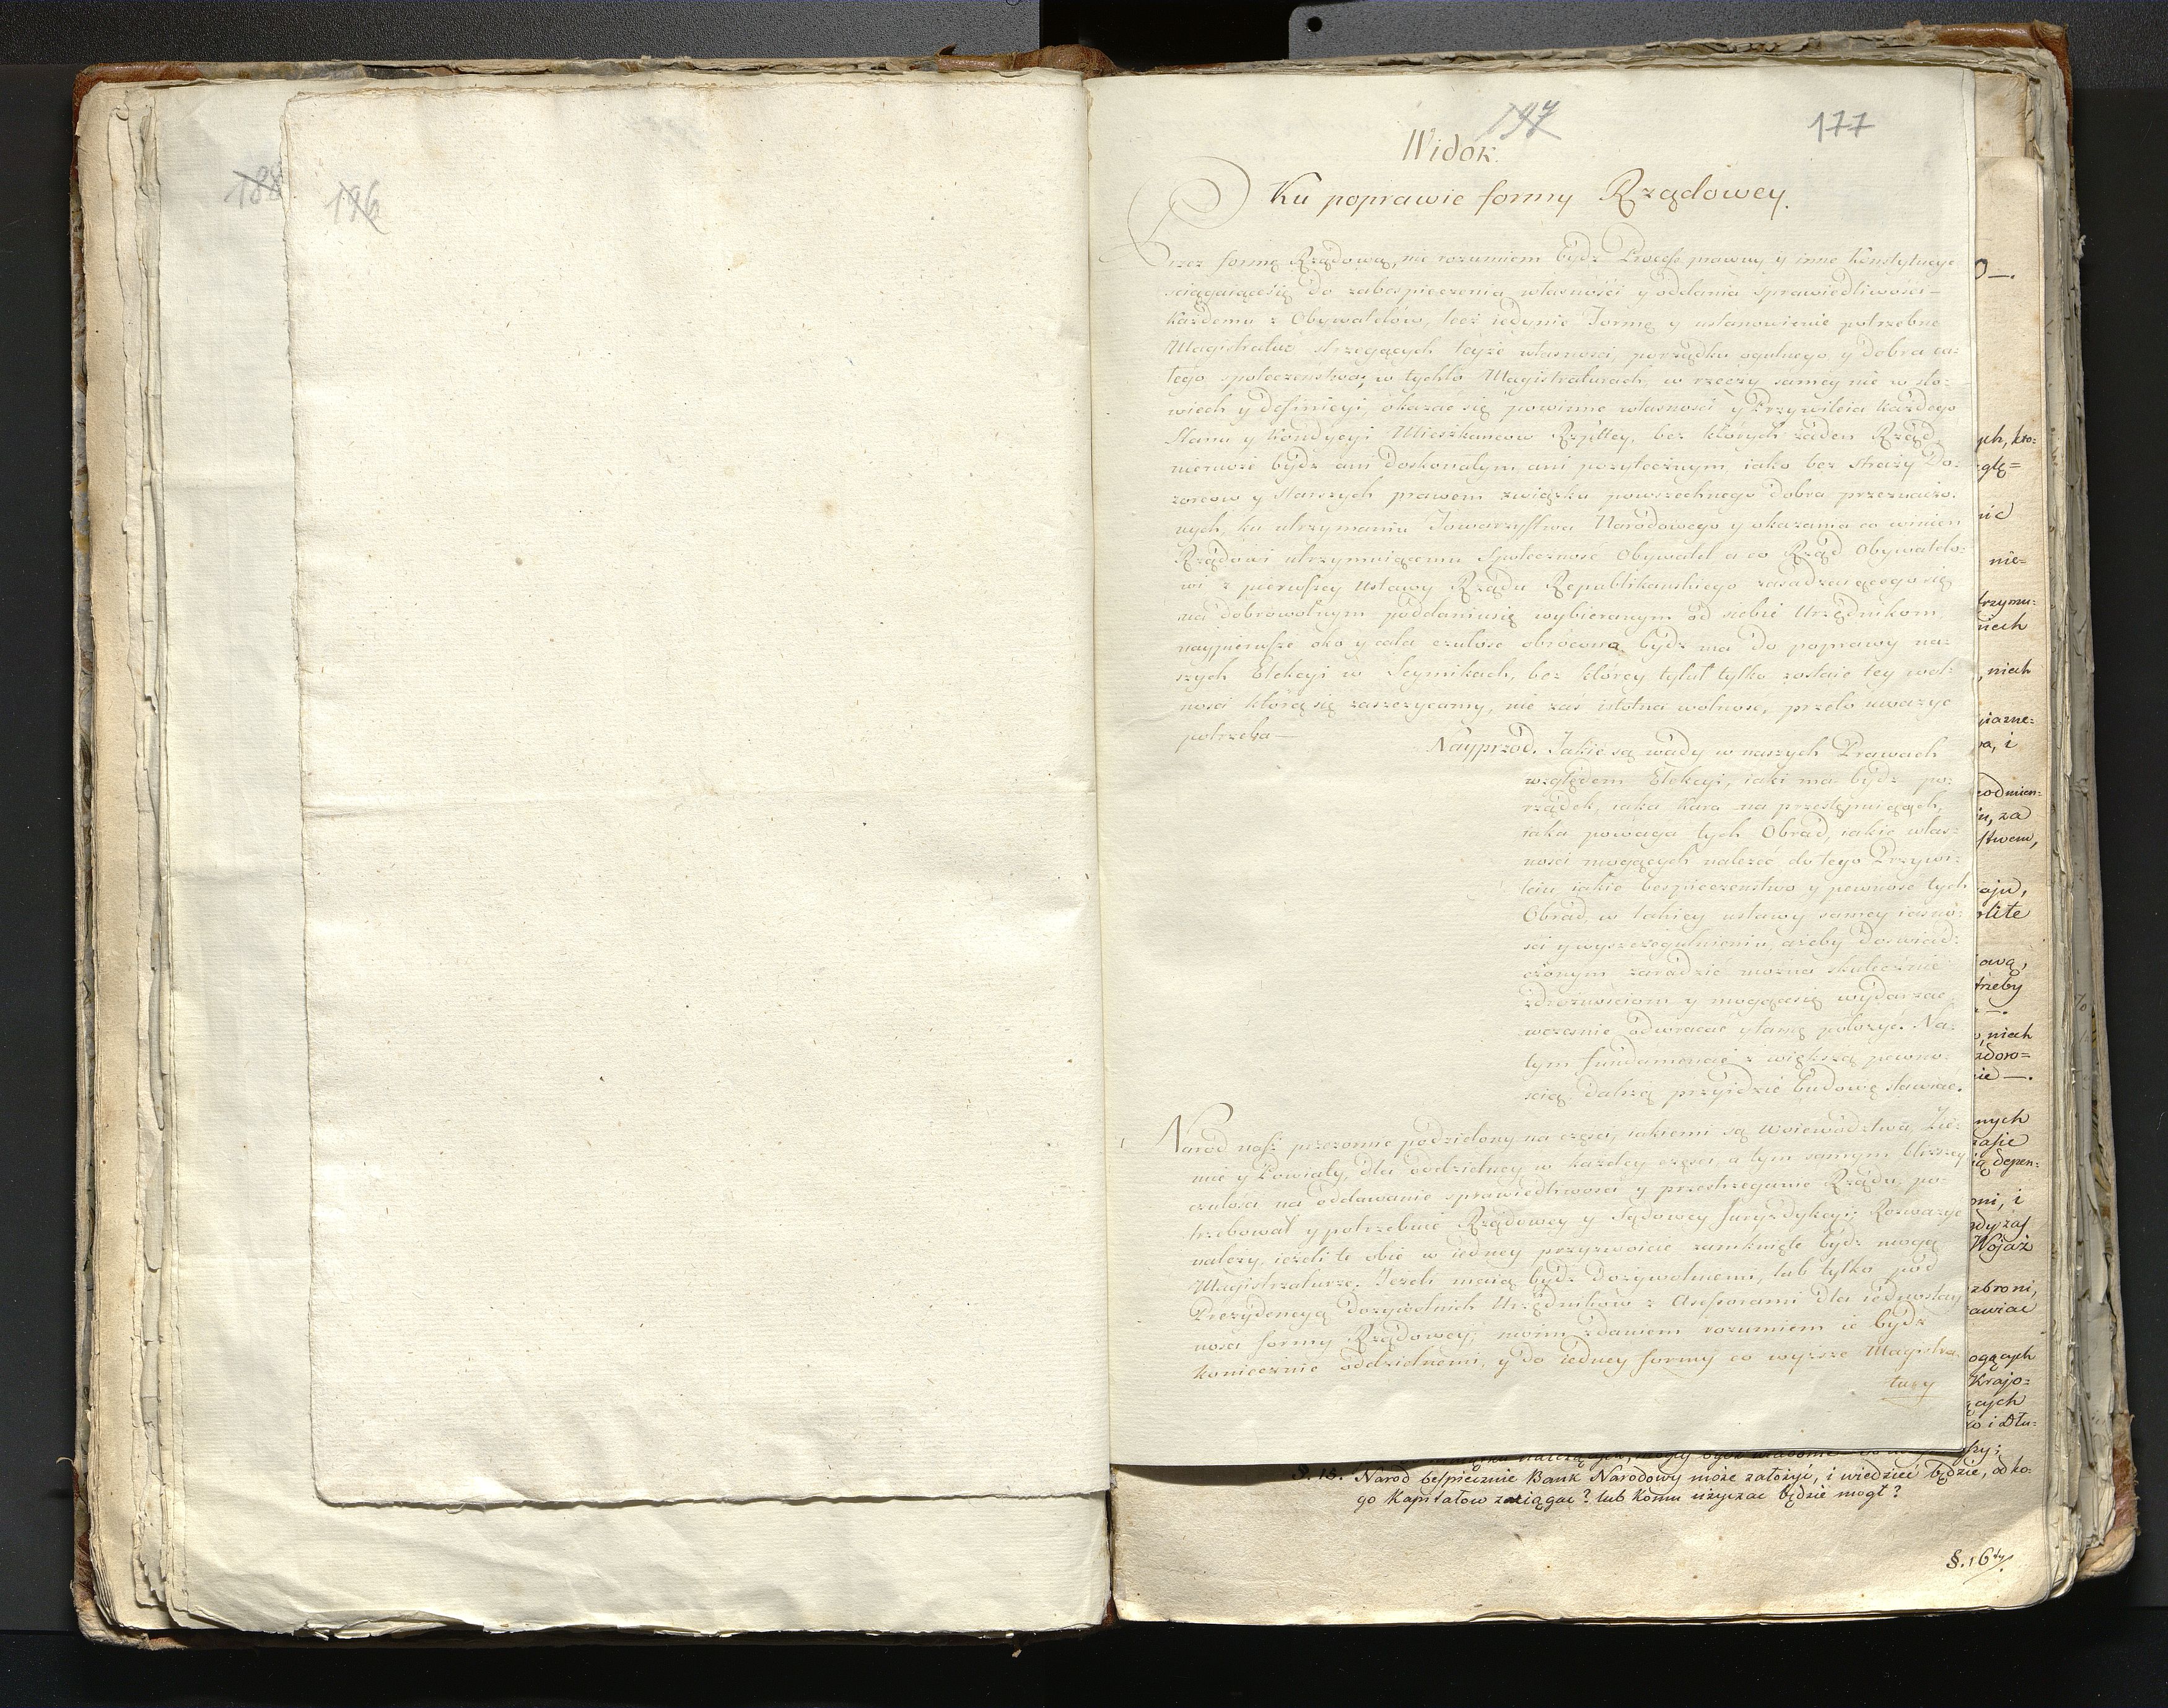 188
196
197
177
Widok.
Ku poprawie formy Rządowey.
Przez formę Rządową, nie rozumiem bydz Process prawny y inne Konstytucye
sciągaiącesię do zabespieczenia własności y oddania sprawiedliwości
Każdemu z Obywatelów, lecz iedynie Formę y ustanowienie potrzebne
Magistratur strzegących teyże własności, porządku ogulnego y dobra ca=
łego społeczenstwa, w tychto Magistraturach w rzeczy samey nie w sło=
wiech y definicyi, okazać się powinne własności y Przywileia każdego
Stanu y Kondycyi Mieszkancow Rzpltey, bez których żaden Rząd
niemoże bydz ani doskonałym ani pożytecznym iako bez straży Do=
zorcow y starszych prawem związku powszechnego dobra przeznaczo=
nych, ku utrzymaniu Towarzystwa Narodowego y okazania co winien
Rządowi utrzymuiącemu Społeczność Obywatel a co Rząd Obywatelo=
wi z pierwszey Ustawy Rządu Republikanskiego zasadzaiącego się
na dobrowolnym poddaniusię wybieranym od siebie Urzędnikom
naypierwsze oko y cała czułosc obrocona bydz ma do poprawy na=
szych Elekcyi w Seymikach, bez ktorey tytuł tylko zostaie tey wol=
ności którą się zaszczycamy, nie zaś istotna wolnosc, przeto uwazyc
potrzeba —
Nayprzod. Jakie są wady w naszych Prawach
względem Elekcyi, iaki ma bydz po=
rządek, iaka kara na przestępuiących,
iaka powaga tych Obrad, iakie włas=
ności mogących należeć do tego Przywi=
leiu iakie bespieczenstwo y pewność tych
Obrad, w takiey ustawy samey iasno=
sci y wyszczegulnieniu, ażeby doswiad=
czonym zaradzic można skutecznie
zdrożnościom y mogącesię wydarzac
wczesnie odwracać y tamę położyć. Na
tym fundamencie z większą pewno=
scią dalszą przyidzie budowę stawiać.
Narod nasz przezornie podzielony na częsci, iakiemi są Woiewodztwa, Zie=
mie y Powiaty, dla oddzielney w każdey częsci a tym samym bliższey
czułości na oddawanie sprawiedliwosci y przestrzeganie Rządu, po=
trzebował y potrzebuie Rządowey y Sądowey Juryzdykcyi; Rozważyc
należy, ieżeli te obie w iedney przyzwoicie zamknięte bydz mogą
Magistraturze. Jezeli maią bydz dożywotniemi, lub tylko pod
Prezydencyą dożywotnich Urzędników z Assessorami dla iednostay
ności formy Rządowey; moim zdaniem rozumiem ie bydz
koniecznie oddzielnemi, y do iedney formy co wyższe Magistra
tury
§. 15. Narod bespiecznie Bank Narodowy może założyć, i wiedzieć będzie, od ko=
go Kapitałow zaciągac? lub komu użyczac będzie mogł?
§. 16ty.